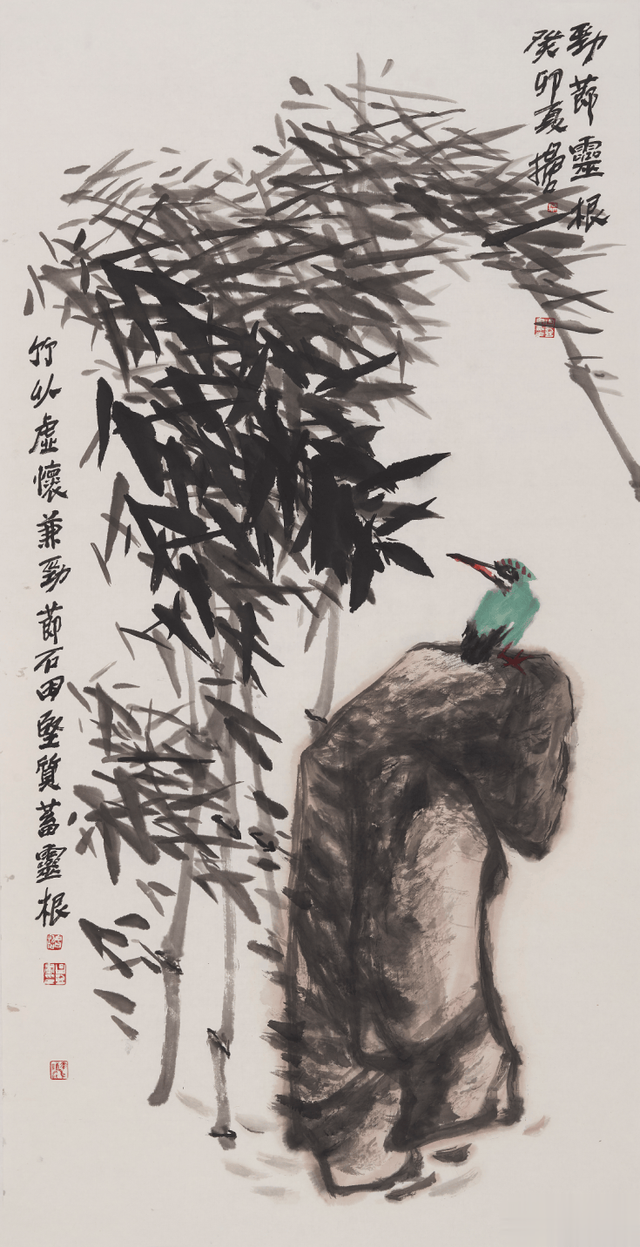 勁節靈根
癸卯夏
竹以虛懷兼勁節石因堅質蓄靈根